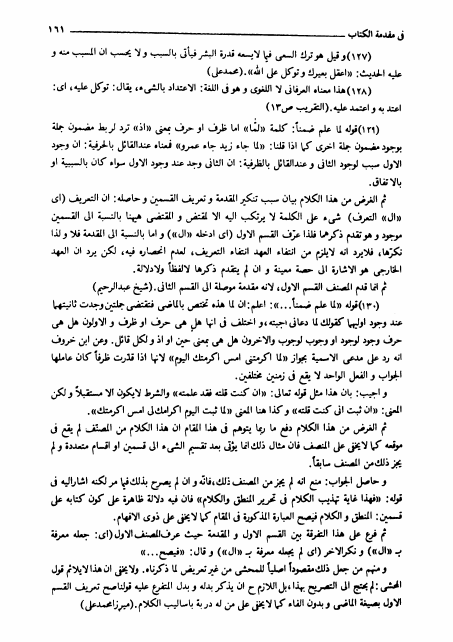 فى مقدمة الكتاب ١٦١
(١٢٧) و قيل هو ترك السعى فيما لايسعه قدرة البشر فيأتى بالسبب و لا يحسب ان المسبب منه و
عليه الحديث: «اعقل بعيرك و توكل على الله».(محمدعلى)
(١٢٨) هذا معناه العرفانى لا اللغوى و هو فى اللغة: الاعتداد بالشىء، يقال: توكل عليه، اى:
اعتد به و اعتمد عليه.(التقريب ص١٣)
(١٢٩) قوله لما علم ضمناً: كلمة «لمّا» اما ظرف او حرف بمعنى «اذ» ترد لربط مضمون جملة
بوجود مضمون جملة اخرى كما اذا قلنا: «لما جاء زيد جاء عمرو» فمعناه عندالقائل بالحرفية: ان وجود
الاول سبب لوجود الثانى و عندالقائل بالظرفية: ان الثانى وجد عند وجود الاول سواء كان بالسببية او
بالاتفاق.
ثم الغرض من هذا الكلام بيان سبب تنكير المقدمة و تعريف القسمين و حاصله: ان التعريف (اى
«ال» التعرف) شىء على الكلمة لا يرتكب اليه الا لمقتض و المقتضى هيهنا بالنسبة الى القسمين
موجود و هو تقدم ذكرهما فلذا عرّف القسم الاول (اى ادخله «ال») و اما بالنسبة الى المقدمة فلا و لذا
نكرّها، فلايرد انه لايلزم من انتفاء العهد انتفاء التعريف، لعدم انحصاره فيه، لكن يرد ان العهد
الخارجى هو الاشارة الى حصة معينة و ان لم يتقدم ذكرها لالفظاً ولادلالة.
ثم انما قدم المصنف القسم الاول، لانه مقدمة موصلة الى القسم الثانى.(شيخ عبدالرحيم)
(١٣٠) قوله «لما علم ضمناً...»: اعلم: ان لما هذه تختص بالماضى فتقتضى جملتين وجدت ثانيتهما
عند وجود اوليهما كقولك لما دعانى اجبته، و اختلف فى انها هل هى حرف او ظرف و الاولون هل هى
حرف وجود لوجود او وجوب لوجوب والآخرون هل هى بمعنى حين او اذ و لكل قائل. وعن ابن خروف
انه رد على مدعى الاسمية بجواز «لما اكرمتنى امس اكرمتك اليوم» لانها اذا قدّرت ظرفاً كان عاملها
الجواب و الفعل الواحد لا يقع فى زمنين مختلفين.
و اجيب: بان هذا مثل قوله تعالى: «ان كنت قلته فقد علمته» والشرط لايكون الا مستقبلاً و لكن
المعنى: «ان ثبت انى كنت قلته» و كذا هنا المعنى «لما ثبت اليوم اكرامك لى امس اكرمتك».
ثم الغرض من هذا الكلام دفع ما ربما يتوهم فى هذا المقام ان هذا الكلام من المصنّف لم يقع فى
موقعه كما لايخفى على المنصف فان مثال ذلك انما يؤتى بعد تقسيم الشىء الى قسمين او اقسام متعددة و لم
يجز ذلك من المصنف سابقاً.
و حاصل الجواب: منع انه لم يجز من المصنف ذلك، فانّه و ان لم يصرح بذلك فيما مر لكنه اشار اليه فى
قوله: «فهذا غاية تهذيب الكلام فى تحرير المنطق والكلام» فان فيه دلالة ظاهرة على كون كتابه على
قسمين: المنطق و الكلام فيصح العبارة المذكورة فى المقام كما لايخفى على ذوى الافهام.
ثم فرع على هذا التفرقة بين القسم الاول و المقدمة حيث عرف المصنف الاول (اى: جعله معرفة
بـ «ال») و نكر الآخر (اى لم يجعله معرفة بـ «ال») و قال: «فيصح...»
و منهم من جعل ذلك مقصوداً اصلياً للمحشى من غير تعريض لما ذكرناه. ولايخفى ان هذا لايلائم قول
المحشى: لم يحتج الى التصريح بهذا، بل اللازم ح ان يذكر بدله و بدل المتفرع عليه قولنا صح تعريف القسم
الاول بصيغة الماضى و بدون الفاء كما لايخفى على من له دربة باساليب الكلام.(ميرزامحمدعلى)